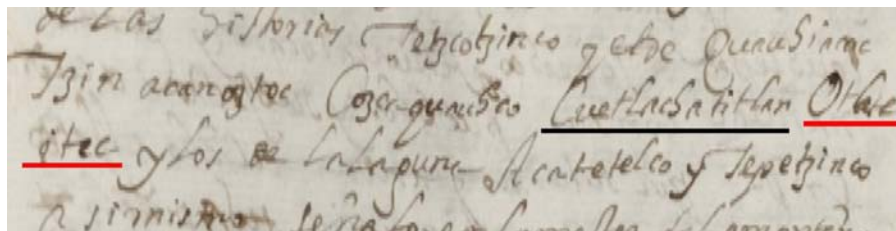 de las historias Tetzcotzinco y el de Quauhiacac
Tzinacanoztoc Cozcaquauhco Cuetlachatitlan Otlate
ytec y los de la laguna Acatetelco y Tepetzinco
asimismo